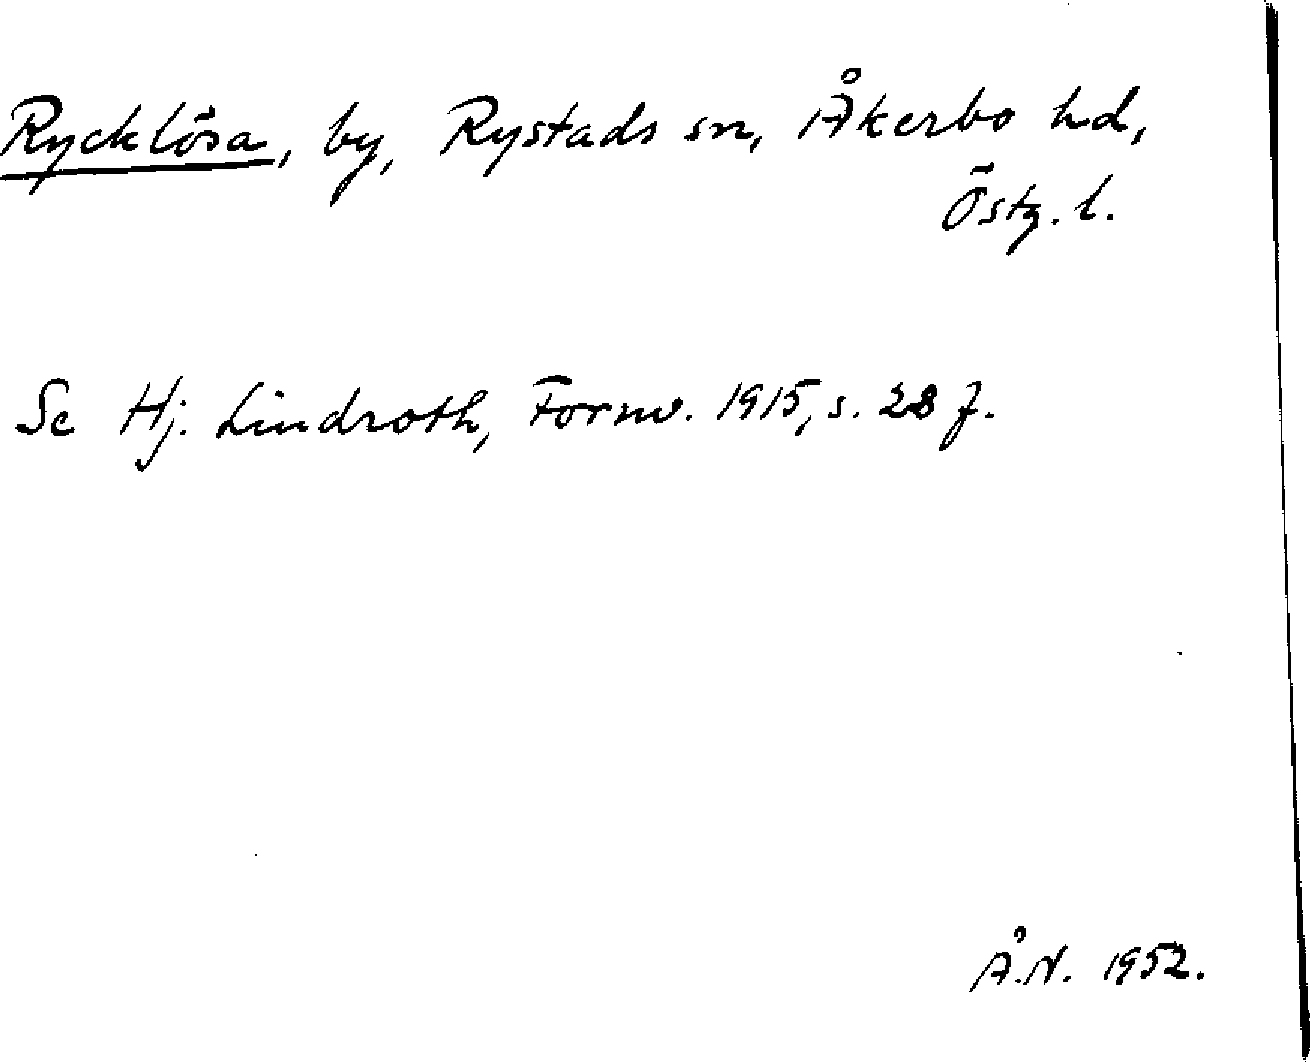 Rycklösa, by, Rystads sn, Åkerbo hd,
Östg. l.
Se Hj. Lindroth, Fornv. 1915, s. 28 f.
Å.N. 1952.